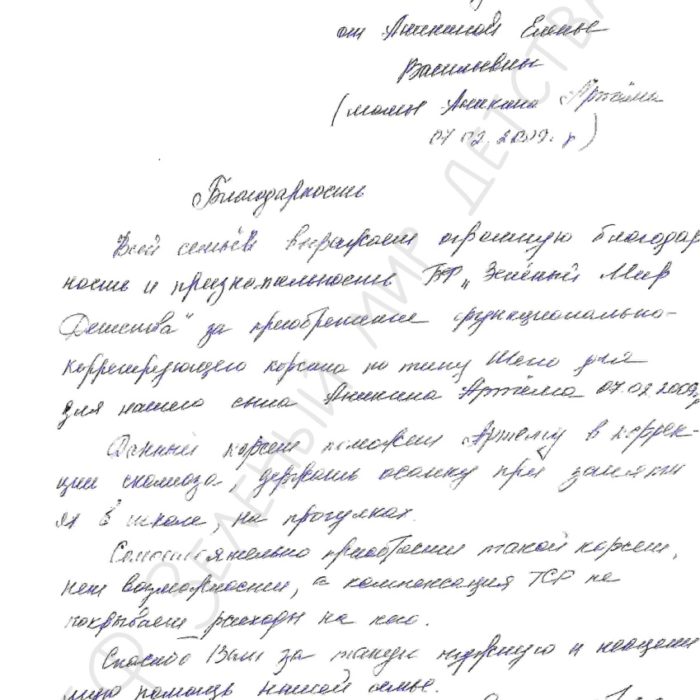 от Аникиной Елены
Васильевны
(мамы Аникина Артёма
07.02.2009 г)
Благодарность
Всей семьёй выражаем огромную благодар
ность и признательность БФ „Зелёный Мир
Детства" за приобретение функционально-
коррегирующего корсета по типу Шено для
для нашего сына Аникина Артёма 07.02.2009
Данный корсет поможет Артёму в коррек-
ции сколиоза, держать осанку при заняти
ях в школе, на прогулках.
Самостоятельно приобрести такой корсет,
нет возможности, а компенсация ТСР не
покрывает расходы на него.
Спасибо Вам за такую нужную и неоцени
мую помощь нашей семье.
ЗЕЛЕНЫЙ МИР ДЕТСТВА